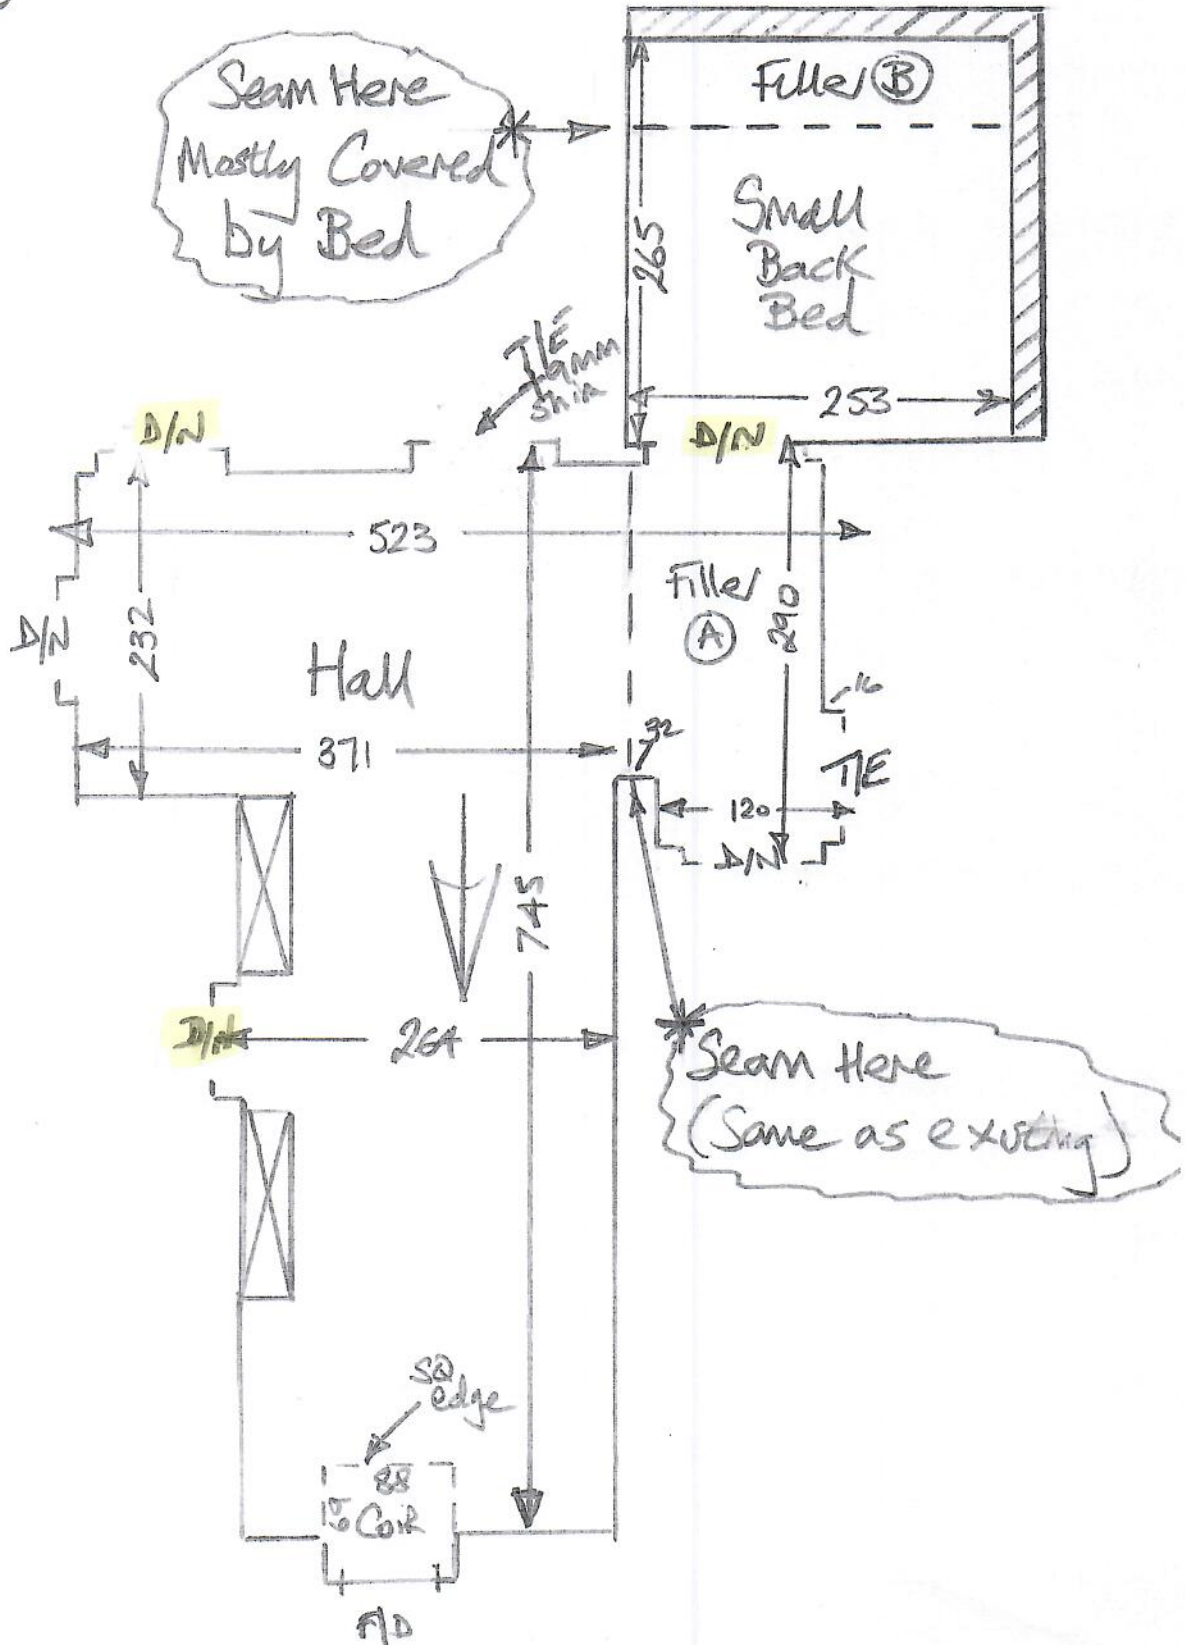 Seam Here
Mostly Covered
by Bed
Filler B
Small
Back
Bed
265
253
T/E
9mm
Shim
D/N
D/N
523
D/N
232
Hall
371
Filler
A
290
16
32
T/E
120
D/N
745
D/N
264
Seam Here
(Same as existing)
SQ
edge
88
Coir
F/D